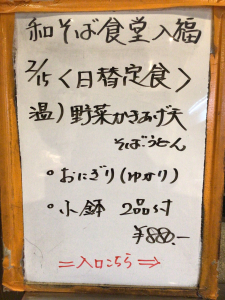 和そば食堂入福
2/15〈日替定食〉
温)野菜かきあげ天
そばうどん
•おにぎり(ゆかり)
•小鉢 2品付
¥880.-
=入口こちら⇒